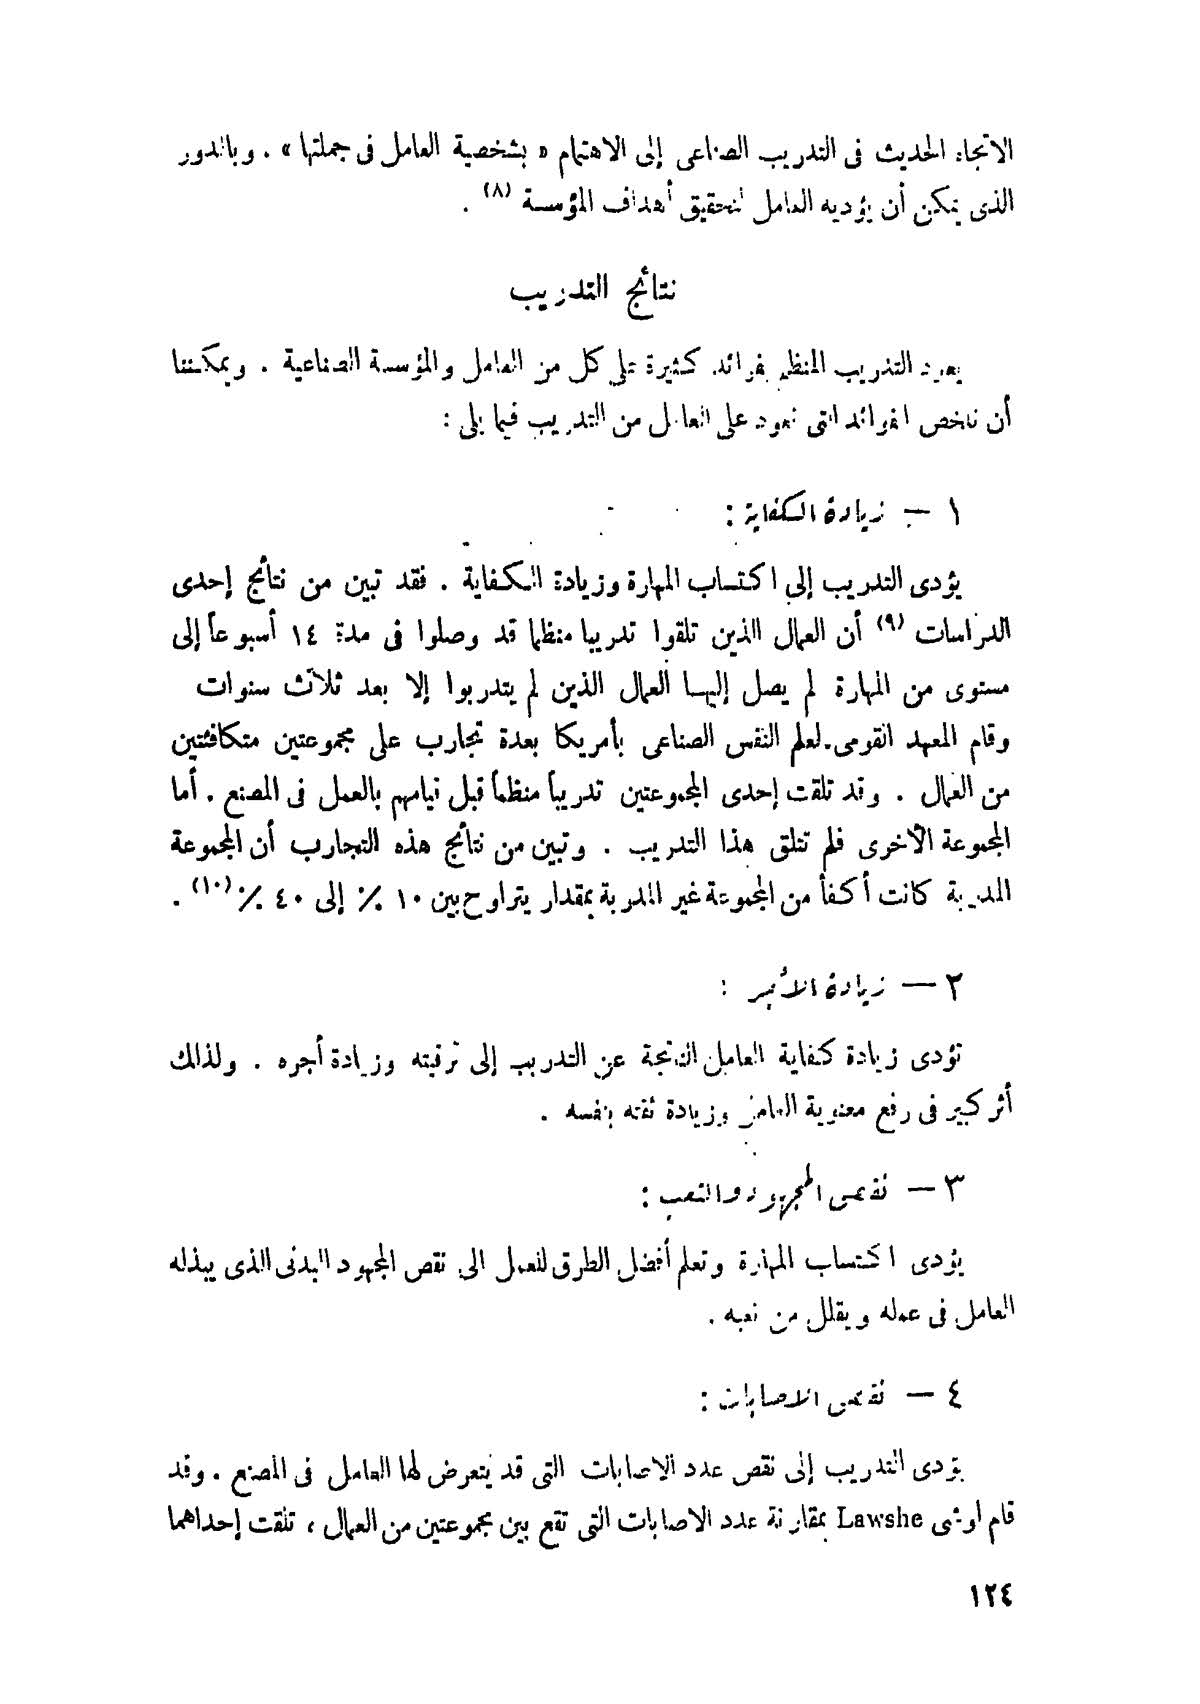 الاتجاه الحديث فى التدريب الصناعى إلى الاهتمام « بشخصية العامل فى جملتها » . وبالدور
الذى يمكن أن يؤديه العامل لتحقيق أهداف المؤسسة (٨) .
نتائج التدريب
يعود التدريب المنظم بفوائد كثيرة على كل من العامل والمؤسسة الصناعية . ويمكننا
أن نلخص الفوائد التى تعود على العامل من التدريب فيما يلى :
١ — زيادة الكفاية :
يؤدى التدريب إلى اكتساب المهارة وزيادة الكفاية . فقد تبين من نتائج إحدى
الدراسات (٩) أن العمال الذين تلقوا تدريبا منظما قد وصلوا فى مدة ١٤ أسبوعاً إلى
مستوى من المهارة لم يصل إليها العمال الذين لم يتدربوا إلا بعد ثلاث سنوات
وقام المعهد القومى لعلم النفس الصناعى بأمريكا بعدة تجارب على مجموعتين متكافئتين
من العمال . وقد تلقت إحدى المجموعتين تدريباً منظماً قبل قيامهم بالعمل فى المصنع . أما
المجموعة الأخرى فلم تتلق هذا التدريب . وتبين من نتائج هذه التجارب أن المجموعة
المدربة كانت أكفأ من المجموعة غير المدربة بمقدار يتراوح بين ١٠ ٪ إلى ٤٠ ٪ (١٠) .
٢ — زيادة الأجر :
تؤدى زيادة كفاية العامل الناتجة عن التدريب إلى ترقيته وزيادة أجره . ولذلك
أثر كبير فى رفع معنوية العامل وزيادة ثقته بنفسه .
٣ — نقص المجهود والتعب :
يؤدى اكتساب المهارة وتعلم أفضل الطرق للعمل الى نقص المجهود البدنى الذى يبذله
العامل فى عمله ويقلل من تعبه .
٤ — نقص الاصابات :
يؤدى التدريب إلى نقص عدد الاصابات التى قد يتعرض لها العامل فى المصنع . وقد
قام لوشى Lawshe بمقارنة عدد الاصابات التى تقع بين مجموعتين من العمال ، تلقت إحداهما
١٢٤